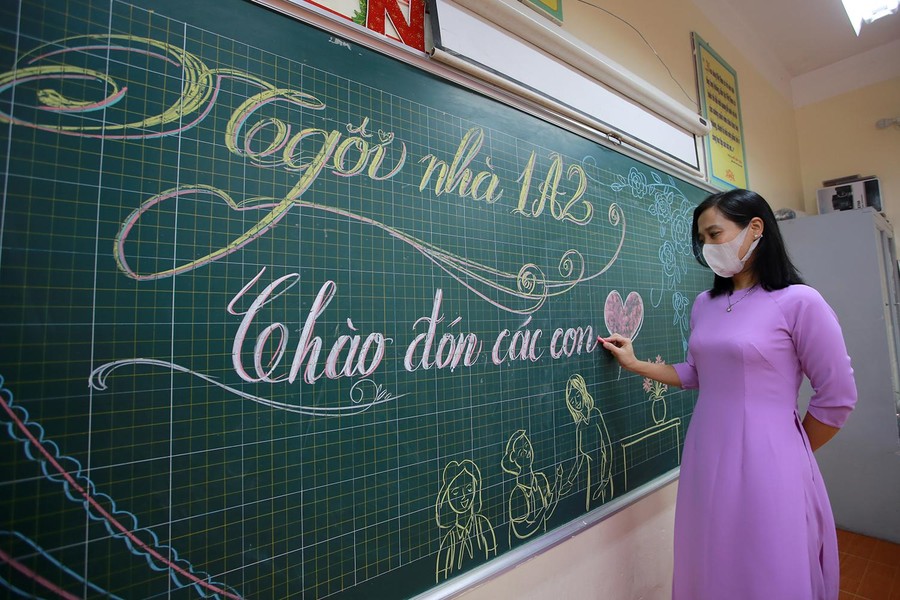 N
Ngôi nhà 1A2
Chào đón các con